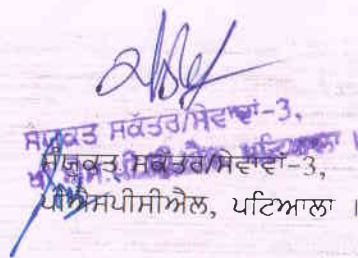 ਸੰਯੁਕਤ ਸਕੱਤਰ/ਸੇਵਾਵਾਂ-3,
ਪਟਿਆਲਾ ।
ਸੰਯੁਕਤ ਸਕੱਤਰ/ਸੇਵਾਵਾਂ-3,
ਪੀਐਸਪੀਸੀਐਲ, ਪਟਿਆਲਾ ।